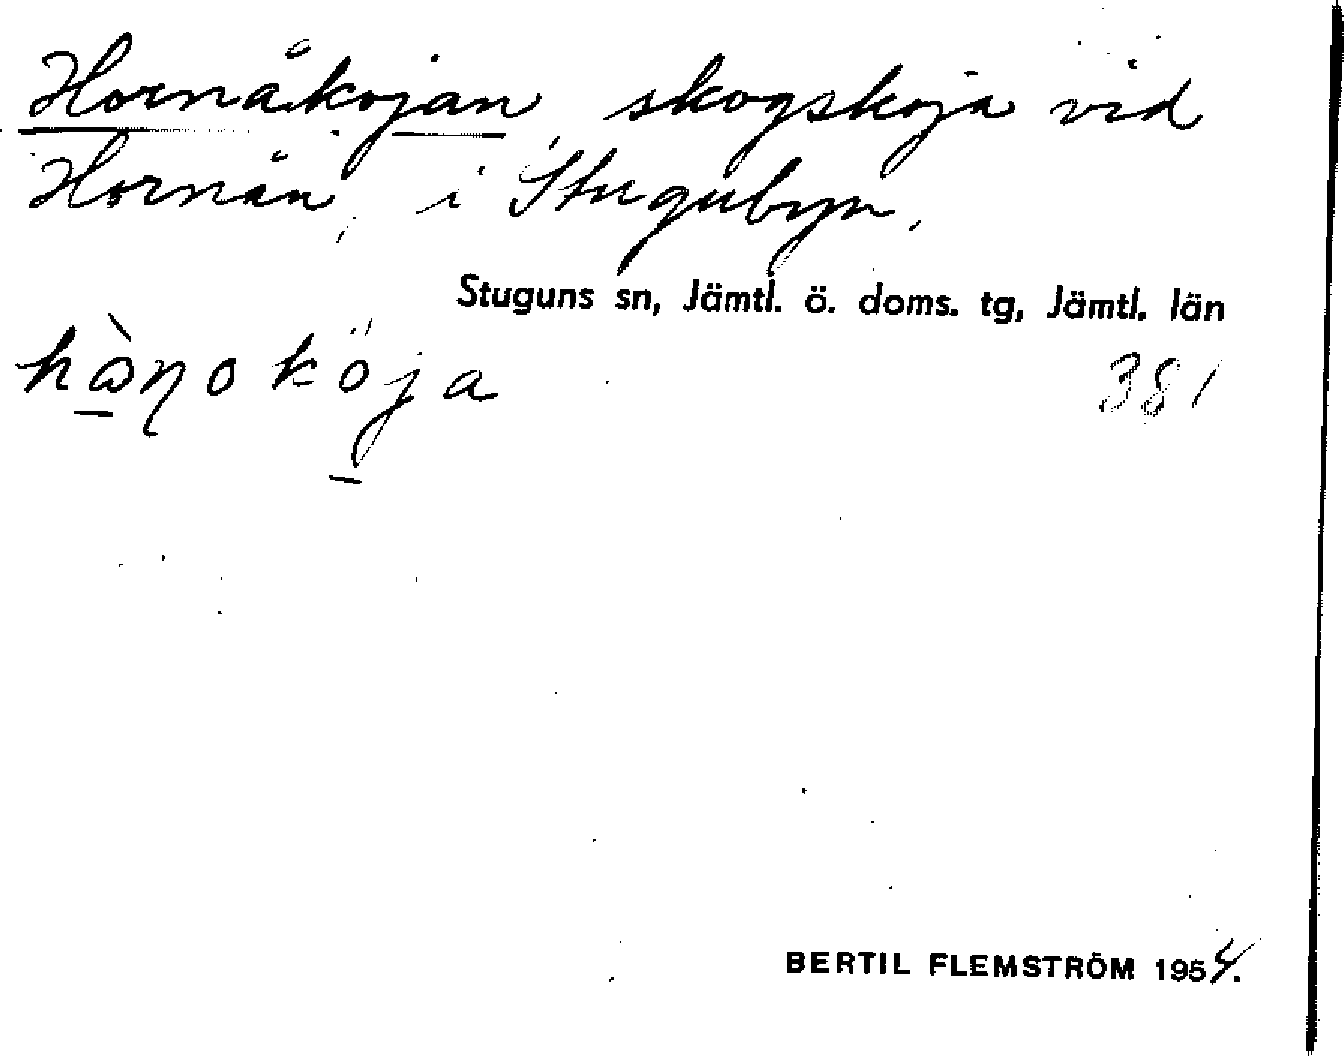 Hornåkojan, skogskoja vid
Hornån, i Stugubyn.
Stuguns sn, Jämtl. ö. doms. tg, Jämtl. län
381
BERTIL FLEMSTRÖM 1954.